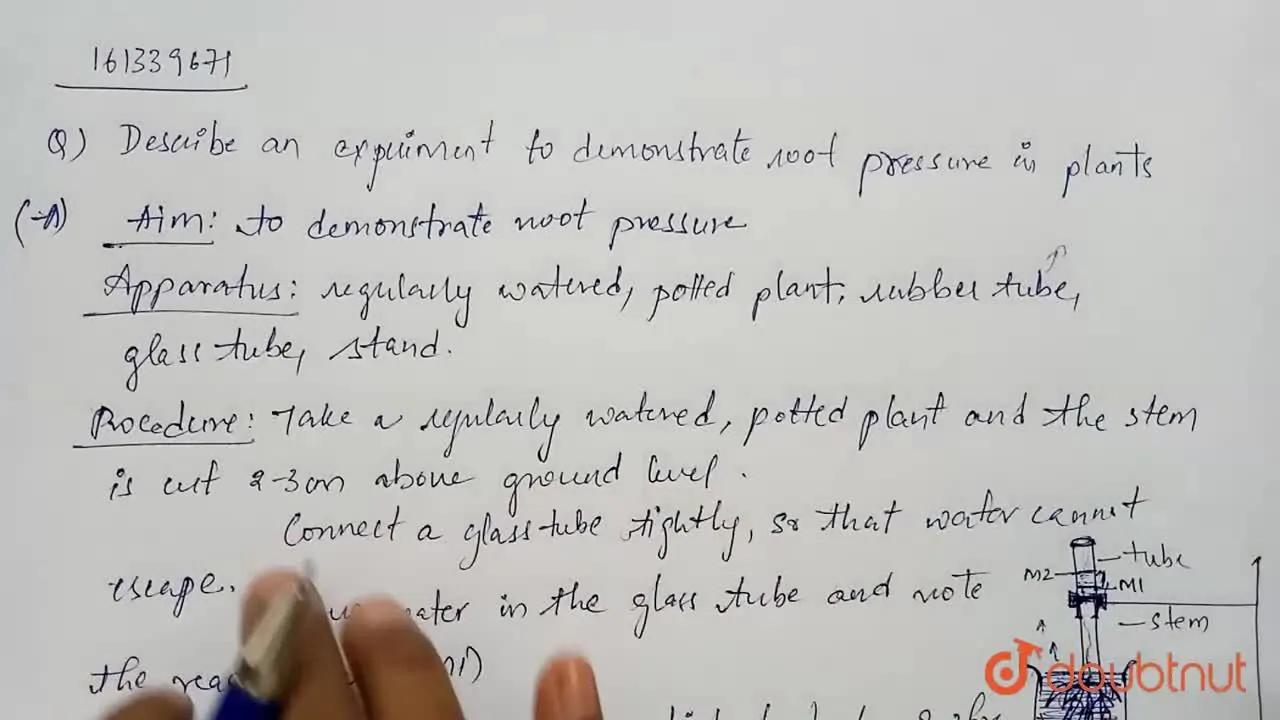 161339671
Q) Describe an expeiriment to demonstrate root pressure in plants
(A) Aim: to demonstrate root pressure
Apparatus: regularly watered, potted plant, rubber tube,
glass tube, stand.
Procedure: Take a regularly watered, potted plant and the stem
is cut 2-3cm above ground level.
Connect a glass tube tightly, so that water cannot
escape.
water in the glass tube and note
the
M2
tube
M1
stem
doubtnut